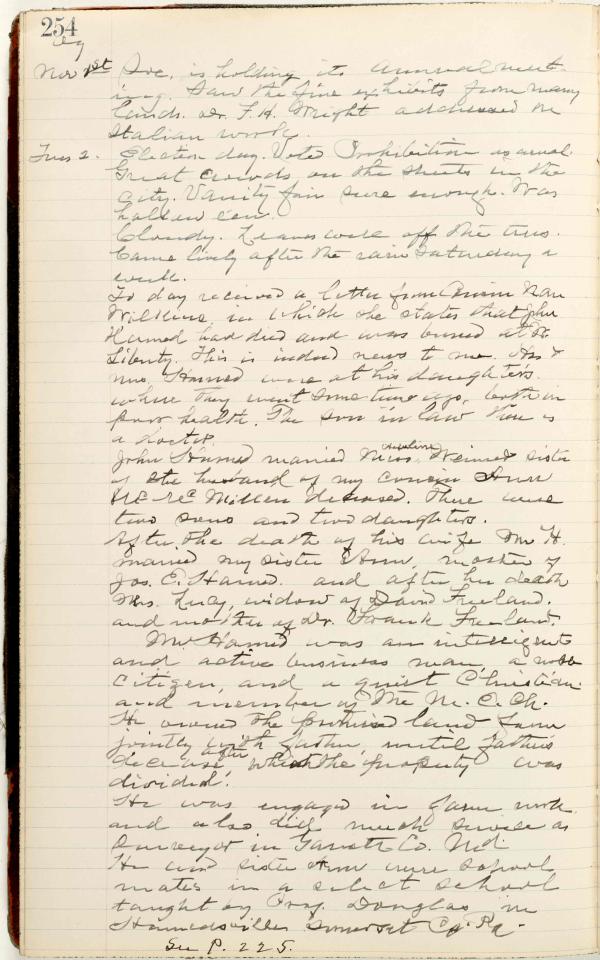 254
Nov 1st Soc. is holding its annual meet-
ing. Saw the fine exhibits from many
lands. Dr. F. H. Wright addressed on
Italian work.
Tues 2. Election day. Voted Prohibition as usual.
Great crowds on the streets in the
City. Vanity fair sure enough. Was
hallow e'en.
Cloudy. Leaves were off the trees.
Came lively after the rain Saturday a
week.
To day received a letter from Cousin Nan
Wilkins in which she states that John
Harned had died and was buried at
Liberty. This is indeed news to me. He &
Mrs. Harned were at his daughter's
where they went some time ago, both in
poor health. The son in law there is
a doctor.
John Harned married Miss Weimer sister
of the husband of my cousin Ann
Mc Millen deceased. There were
two sons and two daughters.
After the death of his wife Mr H.
married my sister Ann, mother of
Jos. E. Harned. and after her death
Mrs. Lucy, widow of David Freeland.
and mother of Dr. Frank Freeland.
Mr Harned was an intelligent
and active business man, a noble
citizen, and a quiet Christian.
and member of the M. E. Ch.
He owned the promised land farm
jointly with father, until father's
decease after which the property was
divided.
He was engaged in farm work
and also did much service as
Surveyor in Garrett Co. Md.
He and sister Ann were school
mates in a select school
taught by Prof. Douglas in
Harnedsville Somerset Co. Pa.
See P. 225.